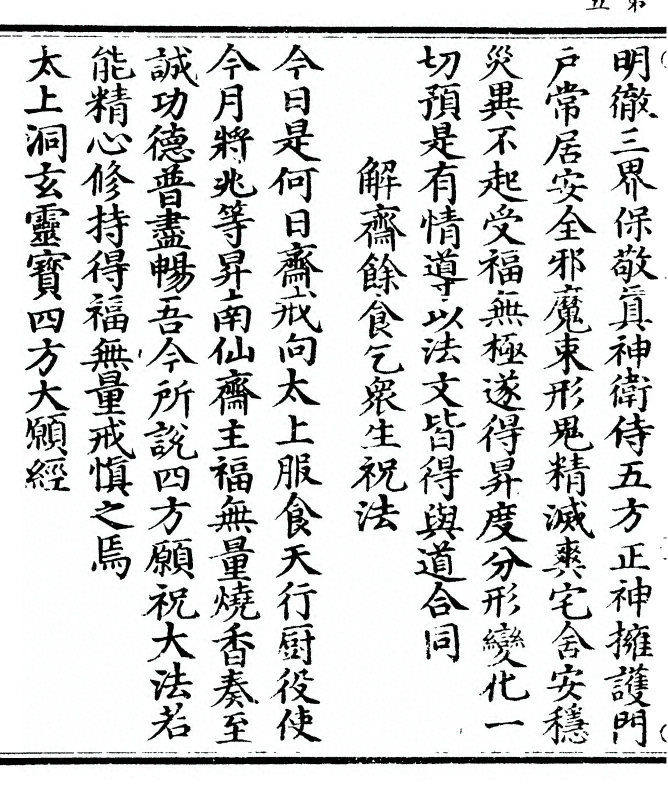 明徹三界保敬真神衛侍五方正神擁護門
戶常居安全邪魔束形鬼精滅爽宅舍安穩
災異不起受福無極遂得昇度分形變化一
切預是有情導以法文皆得與道合同
解齋餘食乞衆生祝法
今日是何日齋戒向太上服食天行厨役使
今月將兆等昇南仙齋主福無量燒香奏至
誠功德普盡暢吾今所說四方願祝大法若
能精心修持得福無量戒慎之焉
太上洞玄靈寶四方大願經